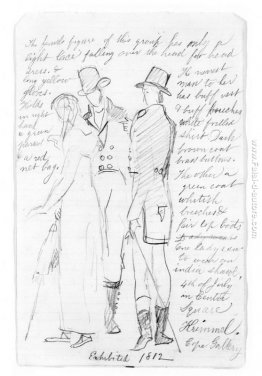 The female figure of this group has only a
light lace falling over the head for head
dress. &
long yellow
gloves.
Holds
in right
hand
a green
parasol
& a red
net bag.
The nearest
man to her
has buff vest
& buff breeches
white frilled
shirt Dark
brown coat
brass buttons.
The other a
green coat
whitish
breeches &
fair top boots
One lady came
to wear an
india shawl
4th of July
in Centre
Square
Krimmel.
Exhibited 1812